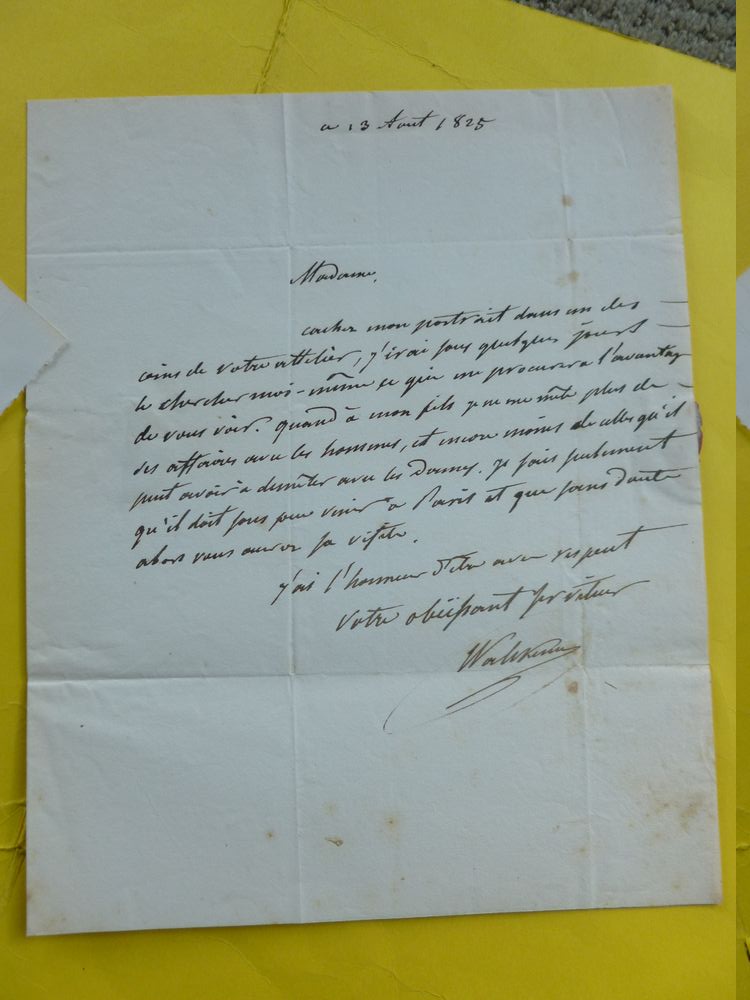 a 13 Aout 1825
Madame,
cachez mon portrait dans un des
coins de votre attelier, j'irai sous quelques jours
le chercher moi-même ce qui me procurera l'avantage
de vous voir. quand à mon fils je ne me mêle plus de
ses affaires avec les hommes, et encore moins de celles qu'il
peut avoir à demêler avec les Dames. je sais seulement
qu'il doit sous peu venir à Paris et que sans doute
alors vous aurez sa visite.
j'ai l'honneur d'être avec respect
votre obéissant serviteur